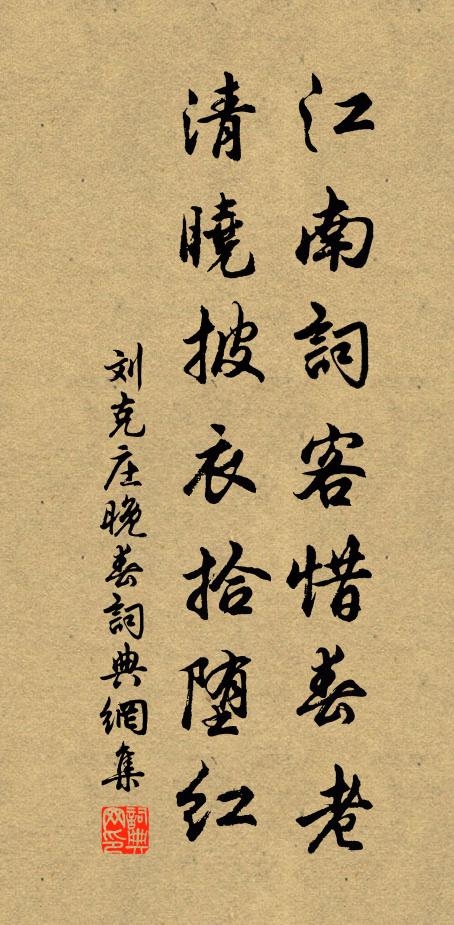 江南詞客惜春老
清曉披衣拾墮紅
刘克庄晚春詞典網集
詞典网印